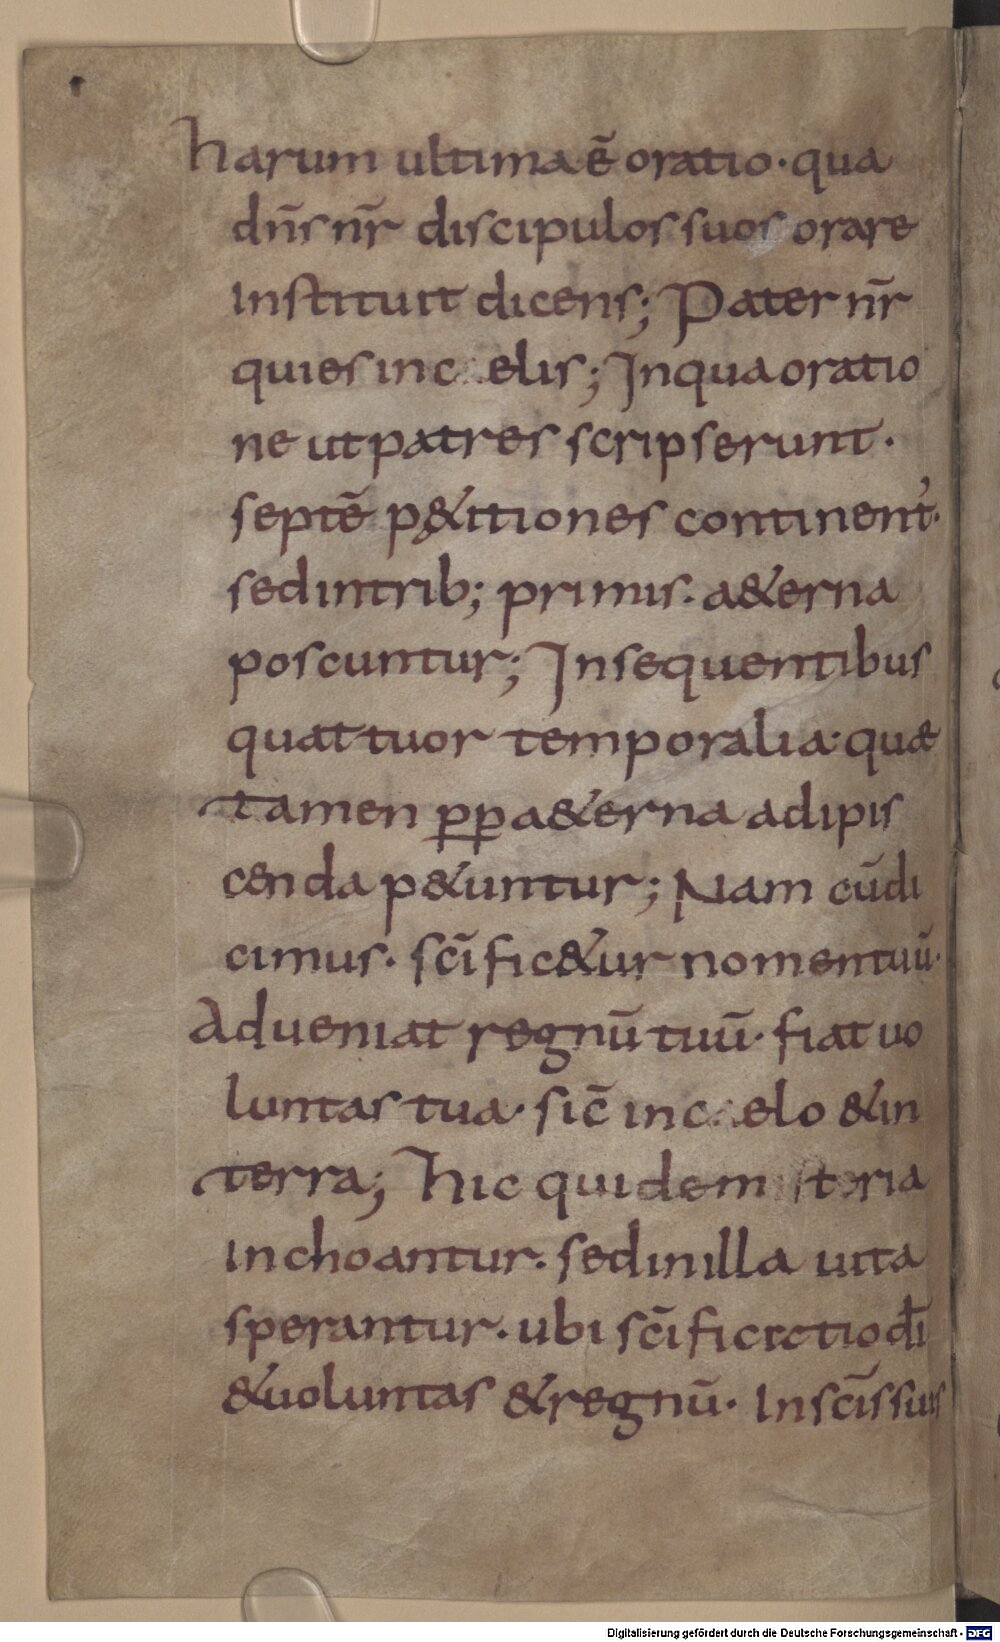 harum ultima ē oratio · qua
dn̄s nr̄ discipulos suos orare
instituit dicens; Pater nr̄
qui es in c elis; In qua oratio
ne ut patres scripserunt ·
septē p&itiones continent᾽ ·
sed in trib; primis · a&erna
poscuntur; In sequentibus
quattuor temporalia · quae
tamen ꝓꝑ a&erna adipis
cenda p&untur; Nam cū di
cimus · scīfic&ur nomen tuū ·
Adueniat regnū tuū · fiat uo
luntas tua · sic̄ in c elo & in
terra; hic quidem ista
inchoantur · sed in illa uita
sperantur · ubi scīficatio dī
& uoluntas & regnū · In scīs suis
Digitalisierung gefördert durch die Deutsche Forschungsgemeinschaft - DFG